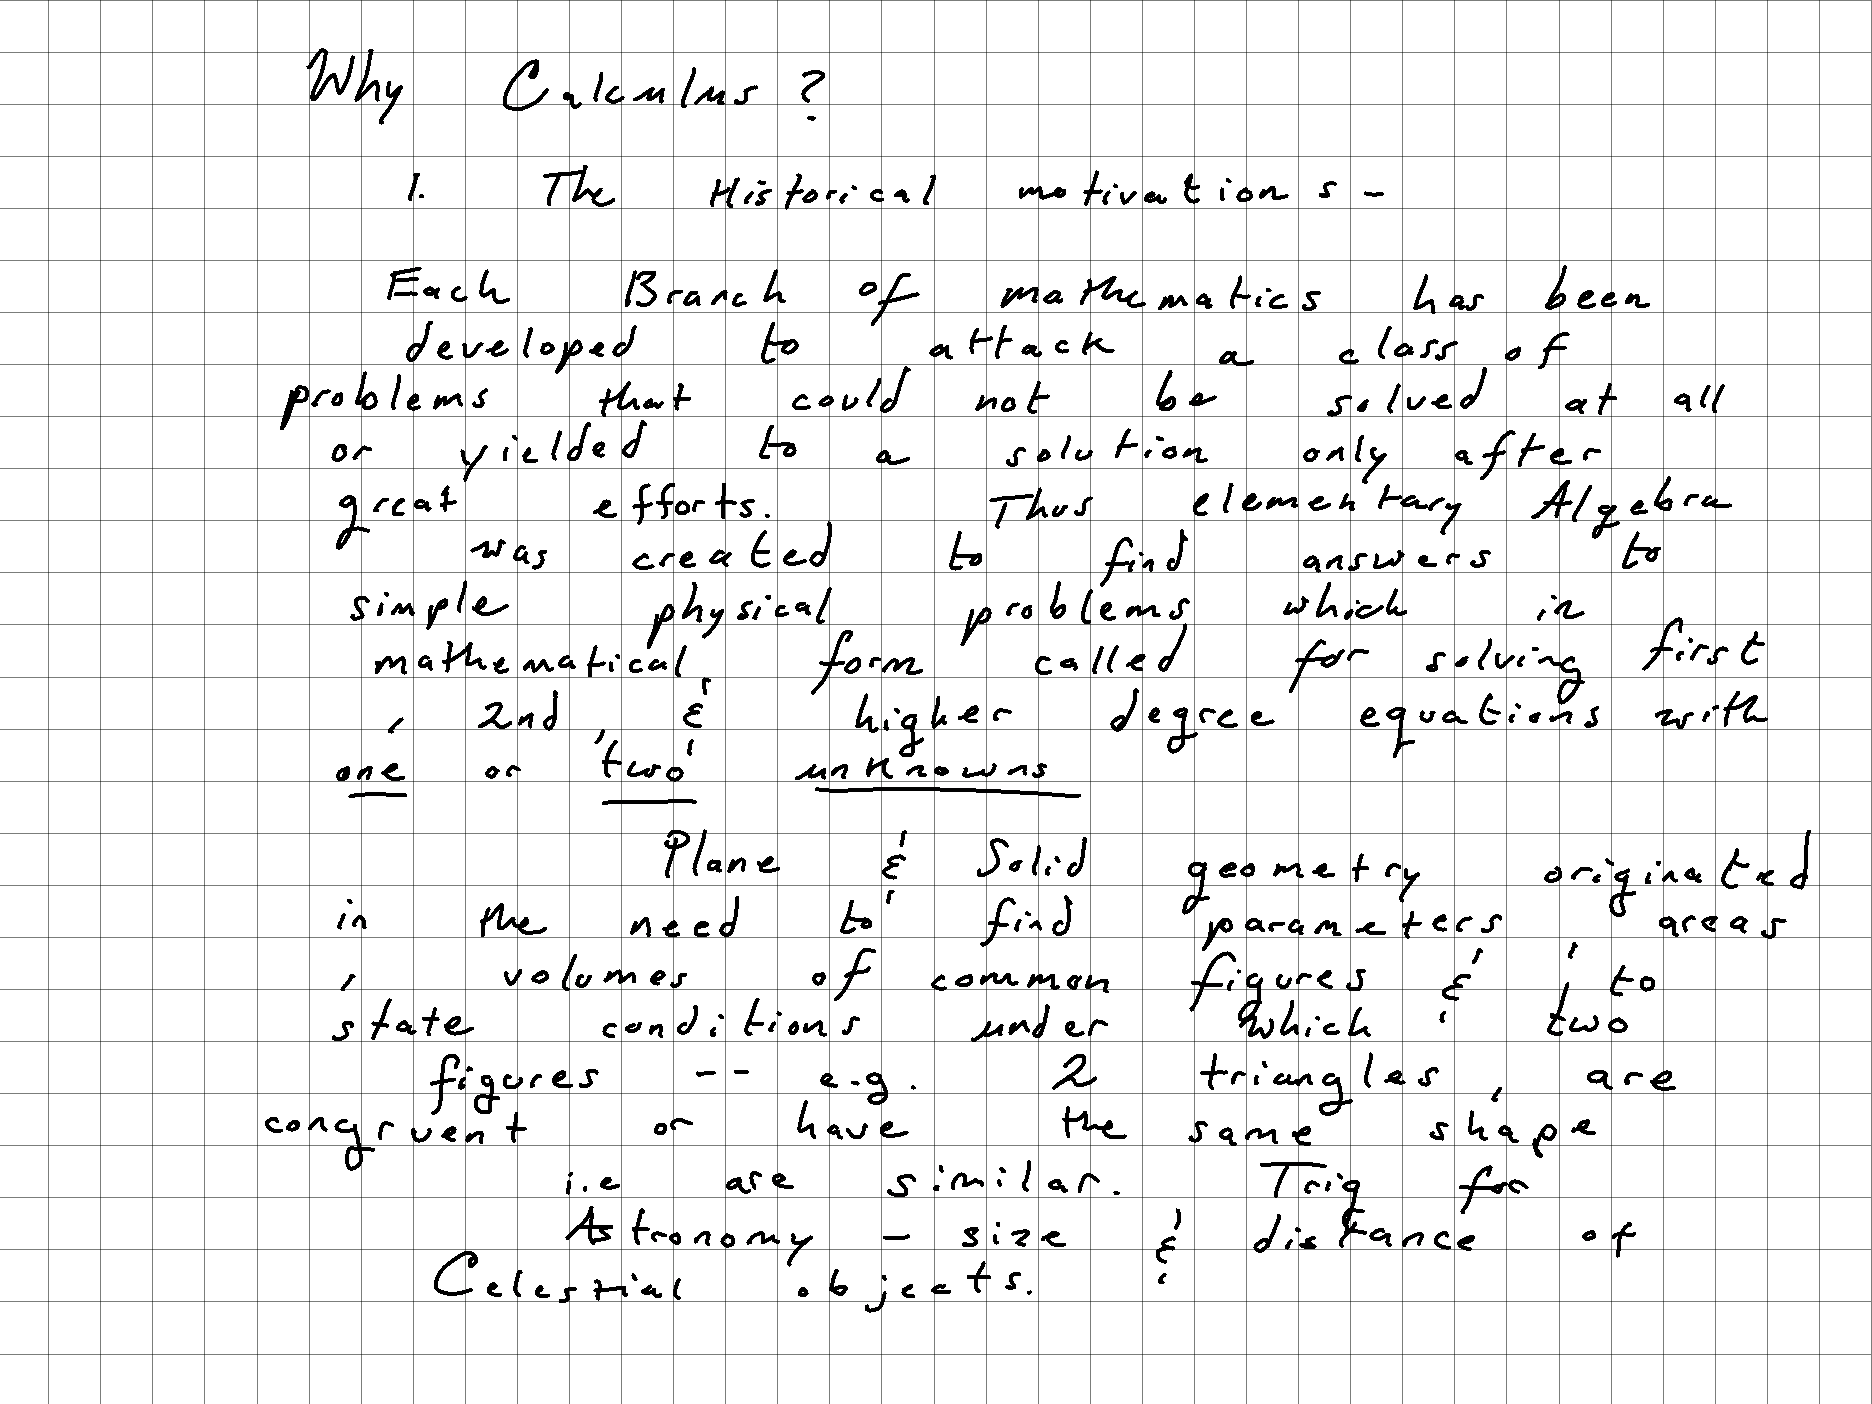 Why Calculus ?
1. The Historical motivations -
Each Branch of mathematics has been
developed to attack a class of
problems that could not be solved at all
or yielded to a solution only after
great efforts. Thus elementary Algebra
was created to find answers to
simple physical problems which in
mathematical form called for solving first
, 2nd , & higher degree equations with
one or two unknowns
Plane & Solid geometry originated
in the need to find parameters areas
, volumes of common figures & , to
state conditions under which two
figures -- e.g. 2 triangles , are
congruent or have the same shape
i.e are similar. Trig for
Astronomy - size & distance of
Celestial objects.